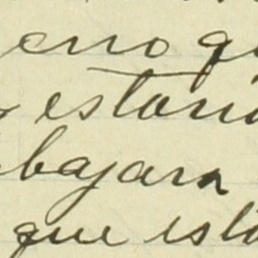 erro q
estari
bajara
que esta